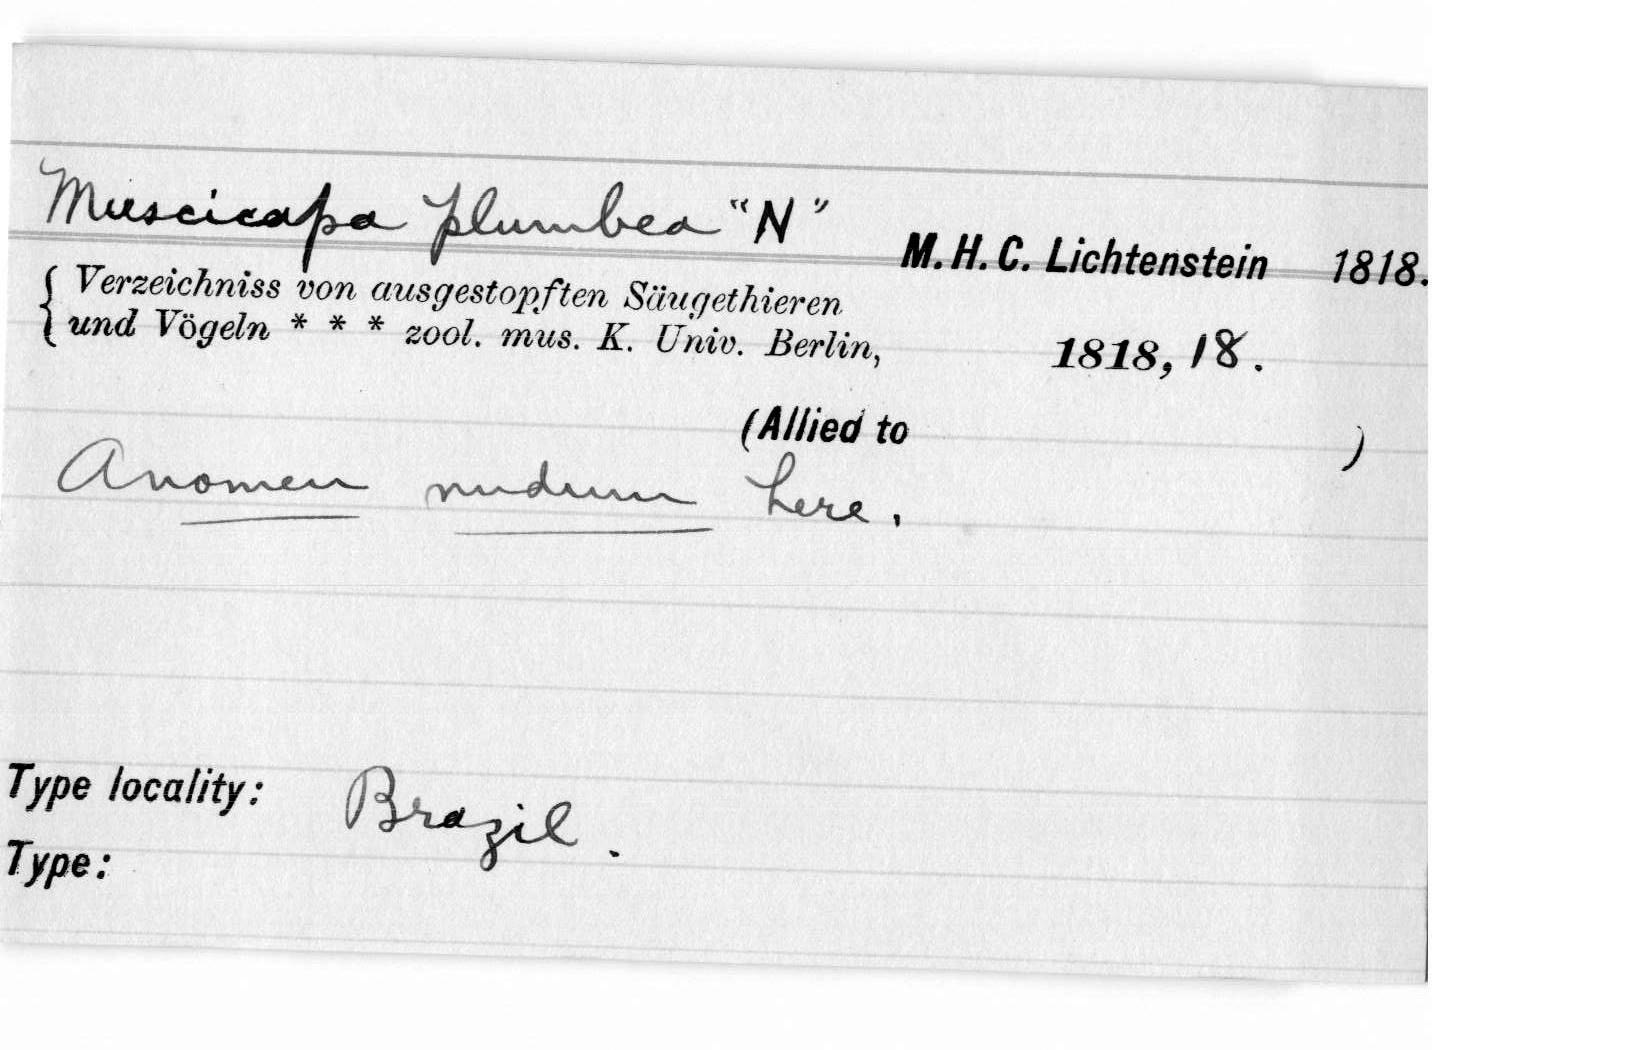 Muscicapa plumbea "N"
M. H. C. Lichtenstein 1818.
{ Verzeichniss von ausgestopften Säugethieren
und Vögeln * * * zool. mus. K. Univ. Berlin, 1818, 18.
(Allied to )
A nomen nudum here.
Type locality: Brazil.
Type: